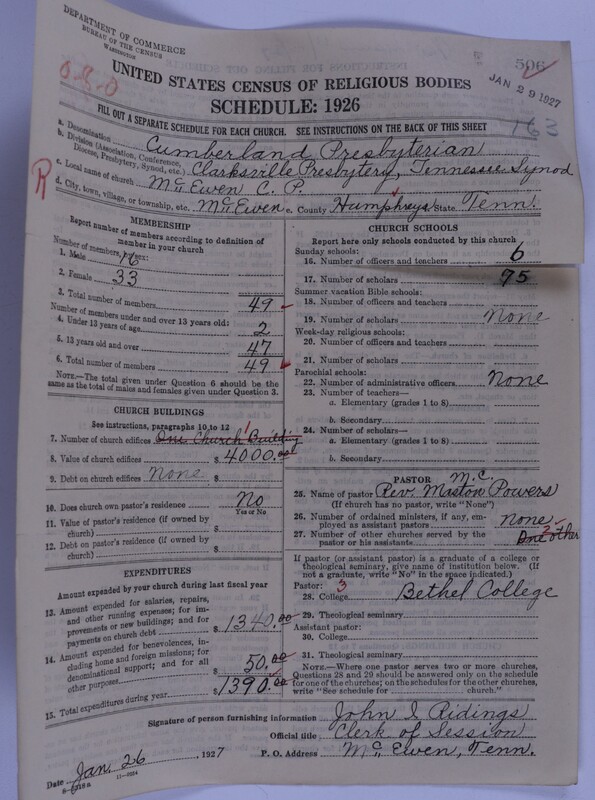 DEPARTMENT OF COMMERCE
BUREAU OF THE CENSUS
WASHINGTON
506
JAN 29 1927
0-8-0
UNITED STATES CENSUS OF RELIGIOUS BODIES
SCHEDULE: 1926
163
FILL OUT A SEPARATE SCHEDULE FOR EACH CHURCH. SEE INSTRUCTIONS ON THE BACK OF THIS SHEET
a. Denomination Cumberland Presbyterian
b. Division (Association, Conference, Diocese, Presbytery, Synod, etc.) Clarksville Presbytery, Tennessee Synod
R
c. Local name of church McEwen C. P.
d. City, town, village, or township, etc. McEwen e. County Humphreys State Tenn.
MEMBERSHIP
Report number of members according to definition of
member in your church
Number of members, by sex:
1. Male 16
2. Female 33
3. Total number of members 49
Number of members under and over 13 years old:
4. Under 13 years of age 2
5. 13 years old and over 47
6. Total number of members 49
NOTE.—The total given under Question 6 should be the
same as the total of males and females given under Question 3.
CHURCH BUILDINGS
See instructions, paragraphs 10 to 12
7. Number of church edifices One Church Building 1
8. Value of church edifices $4000.00
9. Debt on church edifices None $
10. Does church own pastor's residence No
Yes or No
11. Value of pastor's residence (if owned by
church) $
12. Debt on pastor's residence (if owned by
church) $
EXPENDITURES
Amount expended by your church during last fiscal year
13. Amount expended for salaries, repairs,
and other running expenses; for im-
provements or new buildings; and for
payments on church debt $1340.00
14. Amount expended for benevolences, in-
cluding home and foreign missions; for
denominational support; and for all
other purposes 50.00
15. Total expenditures during year $1390.00
CHURCH SCHOOLS
Report here only schools conducted by this church
Sunday schools:
16. Number of officers and teachers 6
17. Number of scholars 75
Summer vacation Bible schools:
18. Number of officers and teachers
19. Number of scholars None
Week-day religious schools:
20. Number of officers and teachers
21. Number of scholars
Parochial schools:
22. Number of administrative officers None
23. Number of teachers—
a. Elementary (grades 1 to 8)
b. Secondary
24. Number of scholars—
a. Elementary (grades 1 to 8)
b. Secondary
PASTOR
M.C.
25. Name of pastor Rev. Maston Powers
(If church has no pastor, write "None")
26. Number of ordained ministers, if any, em-
ployed as assistant pastors None
27. Number of other churches served by the
pastor or his assistants One other
If pastor (or assistant pastor) is a graduate of a college or
theological seminary, give name of institution below. (If
not a graduate, write "No" in the space indicated.)
Pastor: 3
28. College Bethel College
29. Theological seminary
Assistant pastor:
30. College
31. Theological seminary
NOTE.—Where one pastor serves two or more churches,
Questions 28 and 29 should be answered only on the schedule
for one of the churches; on the schedules for the other churches,
write "See schedule for church."
Signature of person furnishing information John I Ridings
Official title Clerk of Session
Date Jan. 26 1927 P. O. Address McEwen, Tenn.